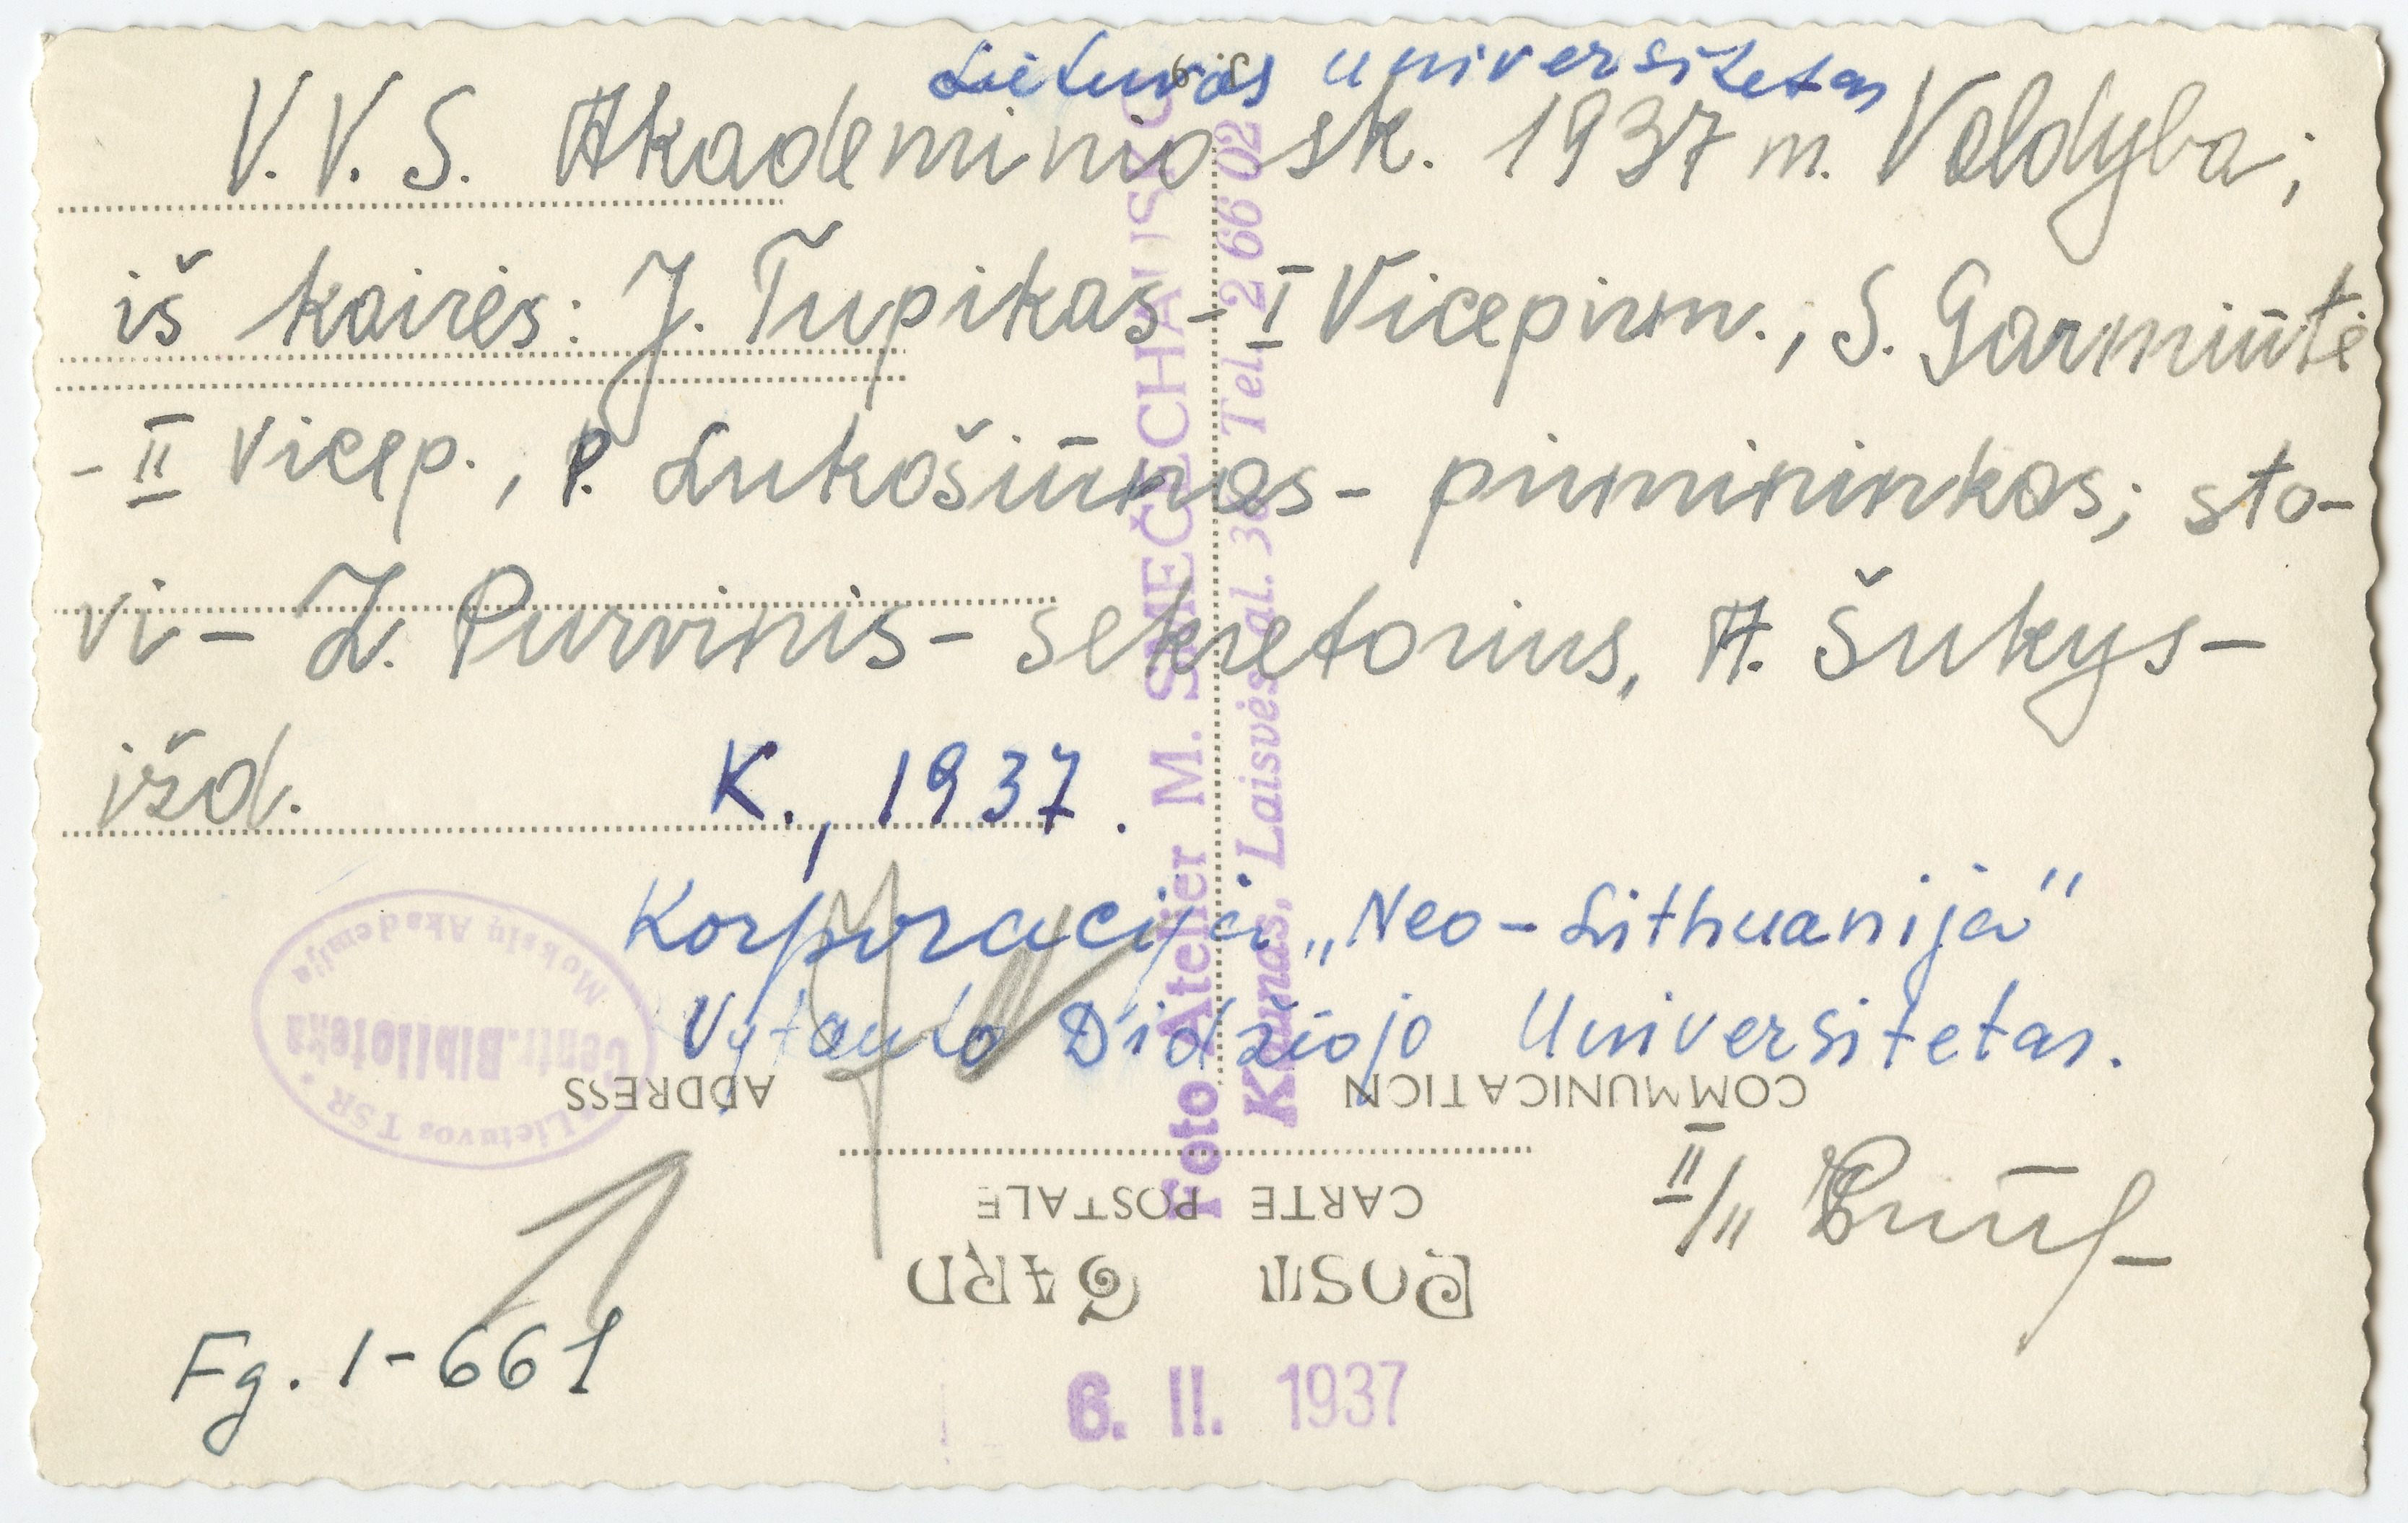 Lietuvos universitetas
V. V. S. Akademinio sk. 1937 m. Valdyba;
iš kairės: J. Tupikas - I Vicepirm., S. Garmiūtė
- II Vicep., P. Lukošiūnas - pirmininkas; sto-
vi - Z. Purvinis - sekretorius, A. Šukys -
ižd.
K., 1937.
Korporacija „Neo-Lithuanija"
Vytauto Didžiojo Universitetas.
Foto Atelier M. SMEČECHAUSKO
Kaunas, Laisvės al. 36 Tel. 2 66 02
Lietuvos TSR
Mokslų Akademija
Centr. Biblioteka
ADDRESS
COMMUNICATION
CARTE POSTALE
POST CARD
II/11
Fg. 1-661
6. II. 1937